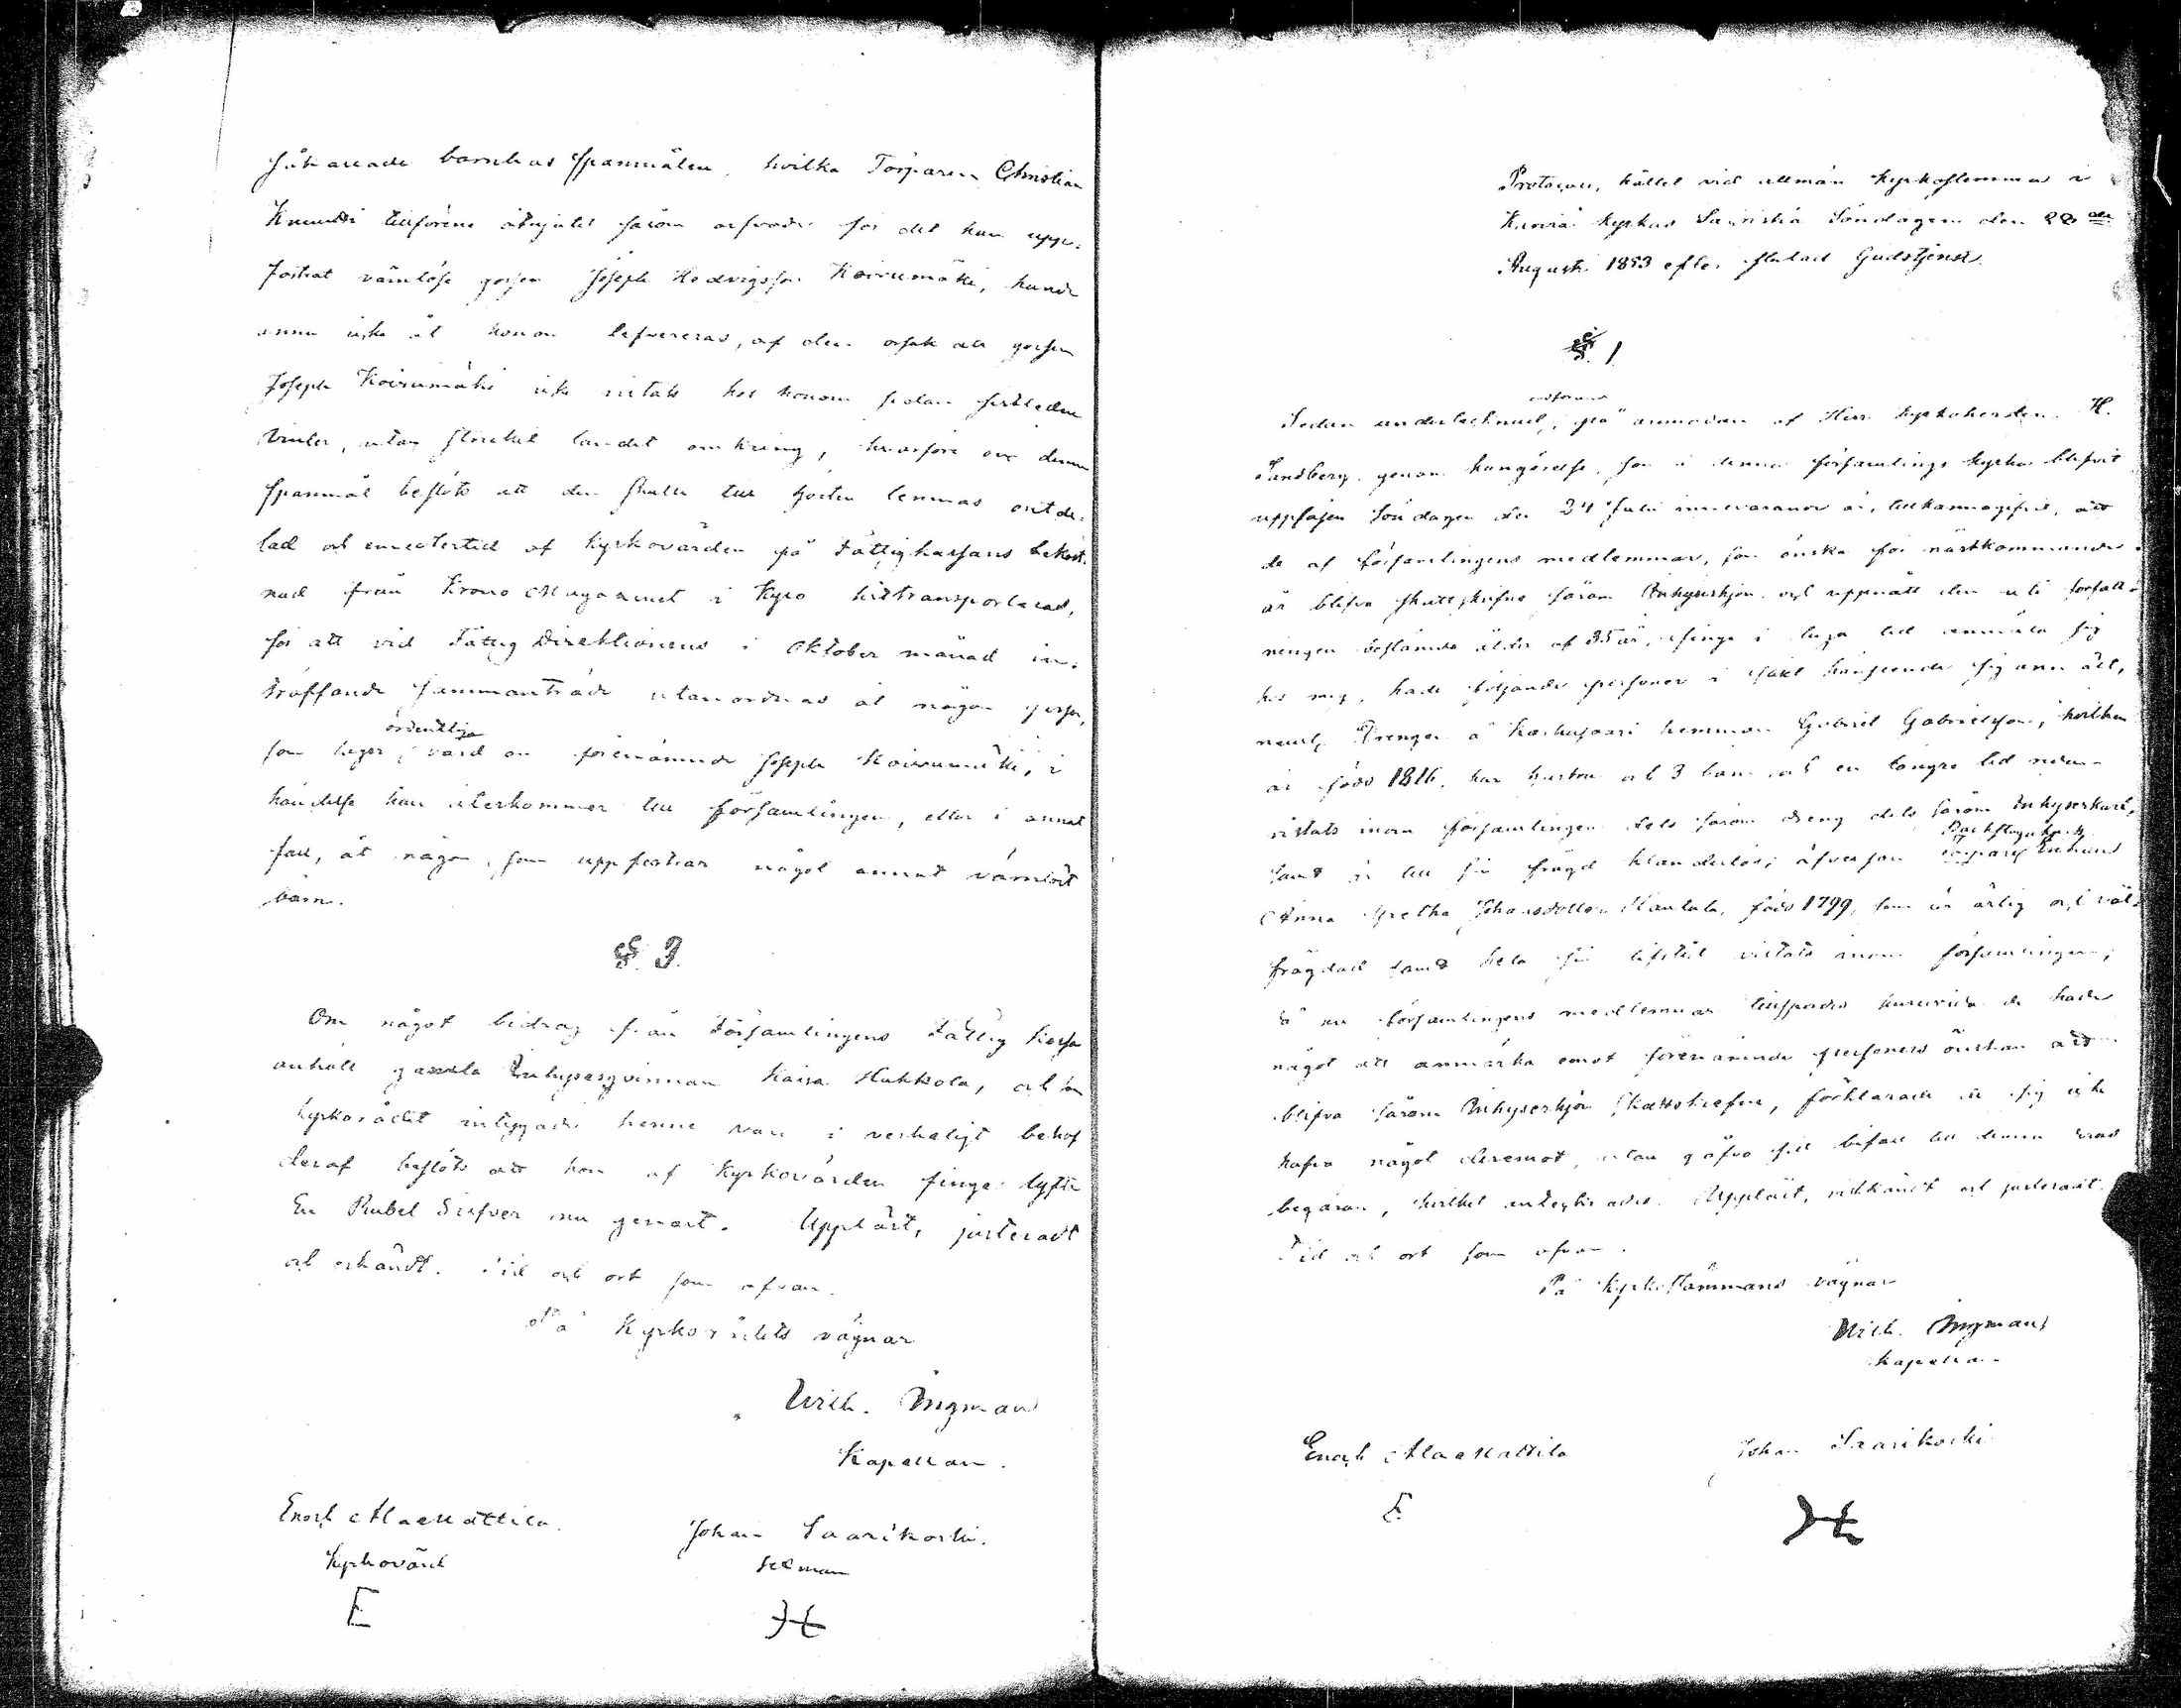 så kallade barnhus spanmålen, hvilka Torparen Christian
Knuuti tillförene åtnjutit såsom arfvode för det han upp-
fostrat värnlöse gossen Joseph Hedvigsson Koivumäki, kunde
ännu icke åt honom lefvereras, af den orsak att gossen
Joseph Koivumäki icke vistats hos honom sedan sistledne
Vinter, utan strukit landet omkring, hvarföre ock denna
spanmål beslöts att den skulle till hösten lemnas outde-
lad och emedlertid af Kyrkovärden på Fattigkassans bekost-
nad från Krono Magasinet i Kyro hittransporteras,
för att vid Fattig Direktionens i Oktober månad in-
träffande sammanträde utanordnas åt någon person,
ordentlig
som tager vård om förenämnde Joseph Koivumäki, i
händelse han återkommer till församlingen, eller i annat
fall, åt någon, som uppfostrar något annat värnlöst
barn.
§. 3.
Om något bidrag från Församlingens Fattig Kassa
anhöll gamla Inhysesqvinnan Kaisa Hukkola, och som
Kyrkorådet intygade henne vara i verkeligt behof
deraf beslöts att hon af Kyrkovärden finge lyfta
En Rubel Silfver nu genast. Uppläst, justeradt
och erkändt. Tid och ort som ofvan.
På Kyrkorådets vägnar
Wilh. Ingman
Kapellan.
Enoch Alamattila
Johan Saarikoski.
Kyrkovärd
sexman
E
Protocoll, hållet vid allmän kyrkostemma i
Kyrkas Sakristia Söndagen den 28de
Augusti 1853 efter slutad Gudstjenst.
§. 1
Sedan undertecknad, på anmodan af Herr Kyrkoherden H.
Sandberg genom kungörelse, som i denna församlings kyrka blifvit
uppläsen Söndagen den 24 Juli innevarande år, tillkännagifvit, att
de af församlingens medlemmar, som önska för nästkommande
år blifva skattskrifne såsom Inhyseshjon och uppnått den uti författ-
ningen bestämda ålder af 35 år, finge i laga tid anmäla sig
hos mig, hade följande personer i sådant hänseende sig anmält,
neml. Drengen å Karhusaari hemman Gabriel Gabrielsson, hvilken
är född 1816, har hustru och 3 barn och en längre tid redan
vistats inom församlingen dels såsom dreng dels såsom Inhyseskarl,
samt är till sin frägd klanderlös; äfvensom Enkan
Anna Gretha Johansdotter Hautala, född 1799, som är ärlig och väl-
frägdad samt hela sin lifstid vistats inom församlingen;
Då nu församlingens medlemmar tillspordes huruvida de hade
något att anmärka emot förenämnde personers önskan att
blifva såsom Inhyseshjon skattskrefne, förklarade de sig icke
hafva något deremot, utan gåfvo sitt bifall till denna deras
begäran, hvilket antecknades. Uppläst, vidkändt och justeradt.
Tid och ort som ofvan.
På Kyrkostämmans vägnar
Wilh. Ingman
Kapellan
Enoch Alamattila
Johan Saarikoski
E.